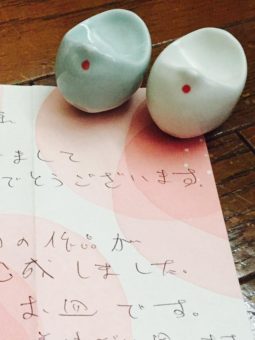 まして
でとうございます.
の作品が
成しました.
お皿です。